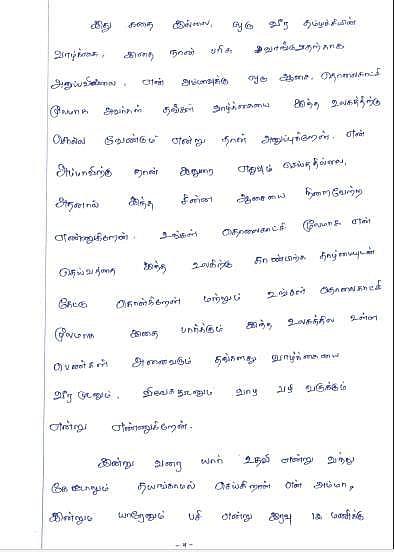 இது கதை இல்லை, ஒரு வீர தமிழச்சியின்
வாழ்க்கை, இதை நான் பரிசு வாங்குவதற்காக
அனுப்பவில்லை, என் அம்மாவுக்கு ஒரு ஆசை, தொலைகாட்சி
மூலமாக அவர்கள் தங்கள் வாழ்க்கையை இந்த உலகத்திற்கு
சொல்ல வேண்டும் என்று நான் அனுப்புகிறேன். என்
அம்மாவிற்கு நான் இதுவரை எதுவும் செய்ததில்லை,
அதனால் இந்த சின்ன ஆசையை நிறைவேற்ற
எண்ணுகிறேன். உங்கள் தொலைகாட்சி மூலமாக என்
தெய்வத்தை இந்த உலகிற்கு காண்பிக்க தாழ்மையுடன்
கேட்டு கொள்கிறேன் மற்றும் உங்கள் தொலைகாட்சி
மூலமாக இதை பார்க்கும் இந்த உலகத்தில் உள்ள
பெண்கள் அனைவரும் தங்களது வாழ்க்கையை
வீரமுடனும், விவேகத்துடனும் வாழ வழி வகுக்கும்
என்று எண்ணுகிறேன்.
இன்று வரை யார் உதவி என்று வந்து
கேட்டாலும் தயங்காமல் செய்கிறாள் என் அம்மா,
இன்றும் யாரேனும் பசி என்று இரவு 12 மணிக்கு